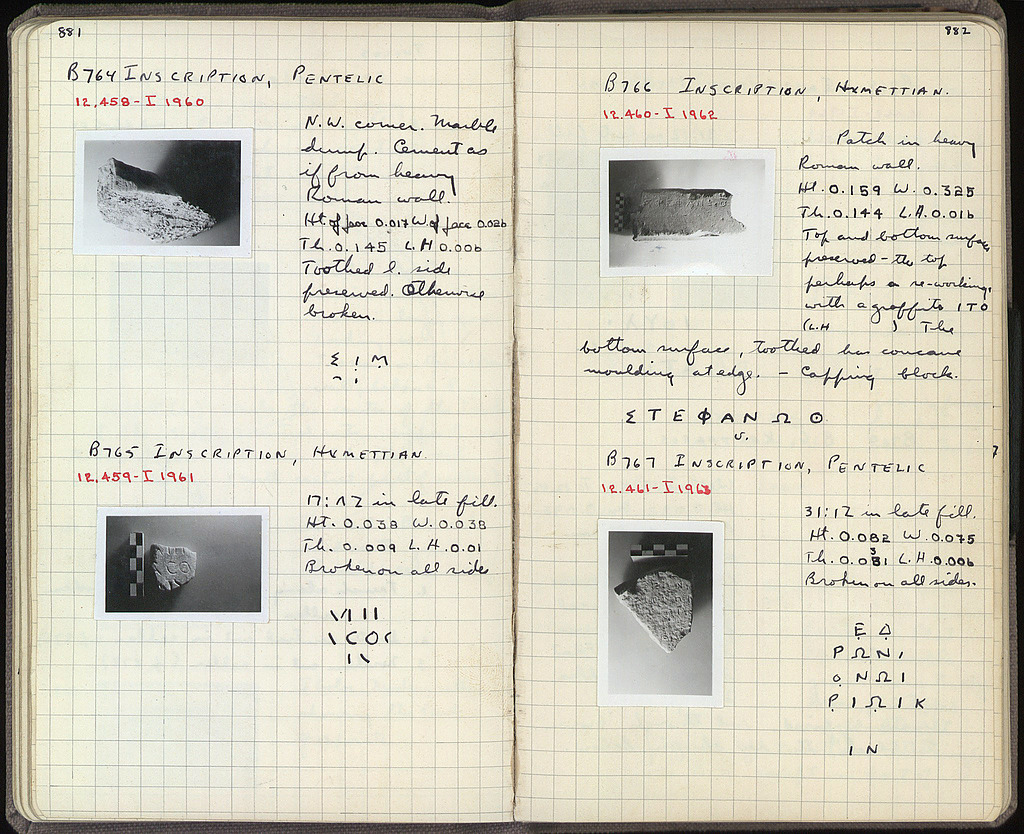 881
B764 INSCRIPTION, PENTELIC
12.458-I 1960
N.W. corner. Marble
dump. Cement as
if from heavy
Roman wall.
Ht. of face 0.017 W. of face 0.026
Th. 0.145 L.H 0.006
Toothed l. side
preserved. Otherwise
broken.
Σ Ι Μ
B765 INSCRIPTION, HYMETTIAN.
12.459-I 1961
17:ΛΖ in late fill.
Ht. 0.038 W. 0.038
Th. 0.009 L.H. 0.01
Broken on all sides
\/I I I
\ C O (
I \
882
B766 INSCRIPTION, HYMETTIAN.
12.460-I 1962
Patch in heavy
Roman wall.
Ht. 0.159 W. 0.325
Th. 0.144 L.H. 0.016
Top and bottom surface
preserved - the top
perhaps a re-working,
with a graffito ITO
(L.H ) The
bottom surface, toothed has concave
moulding at edge. - Capping block.
Σ Τ Ε Φ Α Ν Ω Θ
v.
B767 INSCRIPTION, PENTELIC
12.461-I 1963
31:ΙΖ in late fill.
Ht. 0.082 W. 0.075
Th. 0.031 L.H. 0.006
Broken on all sides.
Ẹ Δ̣
Ρ Ω Ν Ι
ο̣ Ν Ω Ι
Ρ̣ Ι Ω̣ Ι Κ
Ι Ν